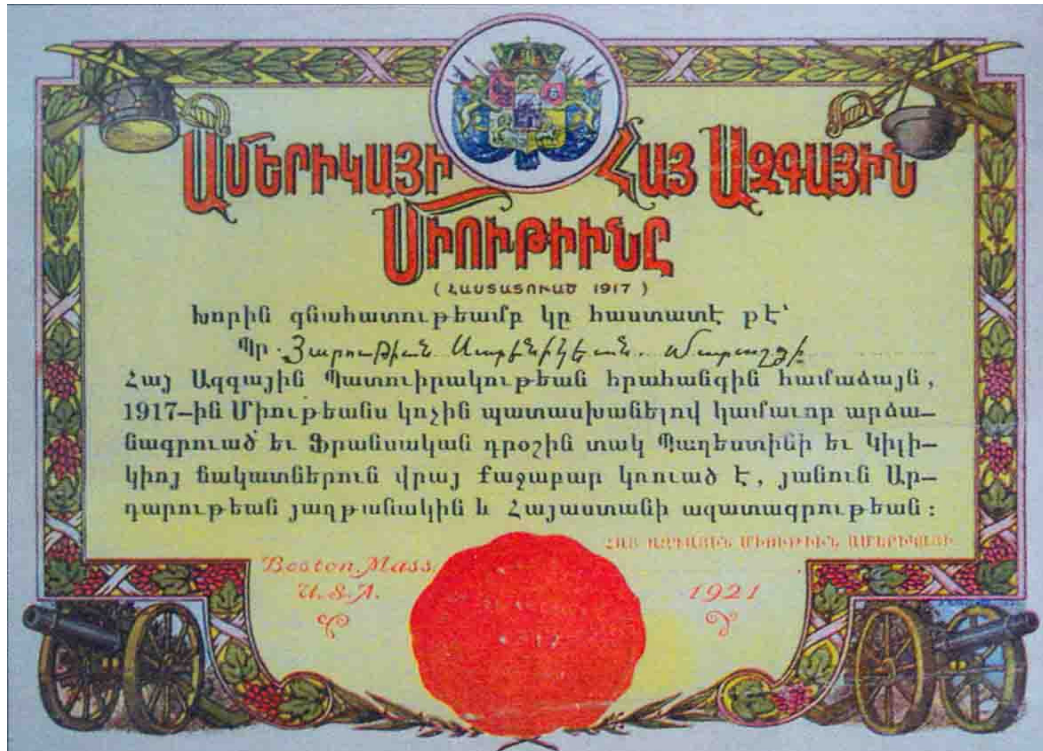 ԱՄԵՐԻԿԱՅԻ ՀԱՅ ԱԶԳԱՅԻՆ
ՄԻՈՒԹԻՒՆԸ
( ՀԱՍՏԱՏՈՒԱԾ 1917 )
Խորին գնահատութեամբ կը հաստատէ թէ՝
Պր. Յարութիւն
Հայ Ազգային Պատուիրակութեան հրահանգին համաձայն,
1917–ին Միութեանս կոչին պատասխանելով կամաւոր արձա–
նագրուած եւ Ֆրանսական դրօշին տակ Պաղեստինի եւ Կիլի–
կիոյ ճակատներուն վրայ քաջաբար կռուած է, յանուն Ար–
դարութեան յաղթանակին և Հայաստանի ազատագրութեան:
ՀԱՅ ԱԶԳԱՅԻՆ ՄԻՈՒԹԻՒՆ ԱՄԵՐԻԿԱՅԻ
Boston, Mass.
U.S.A.
1921